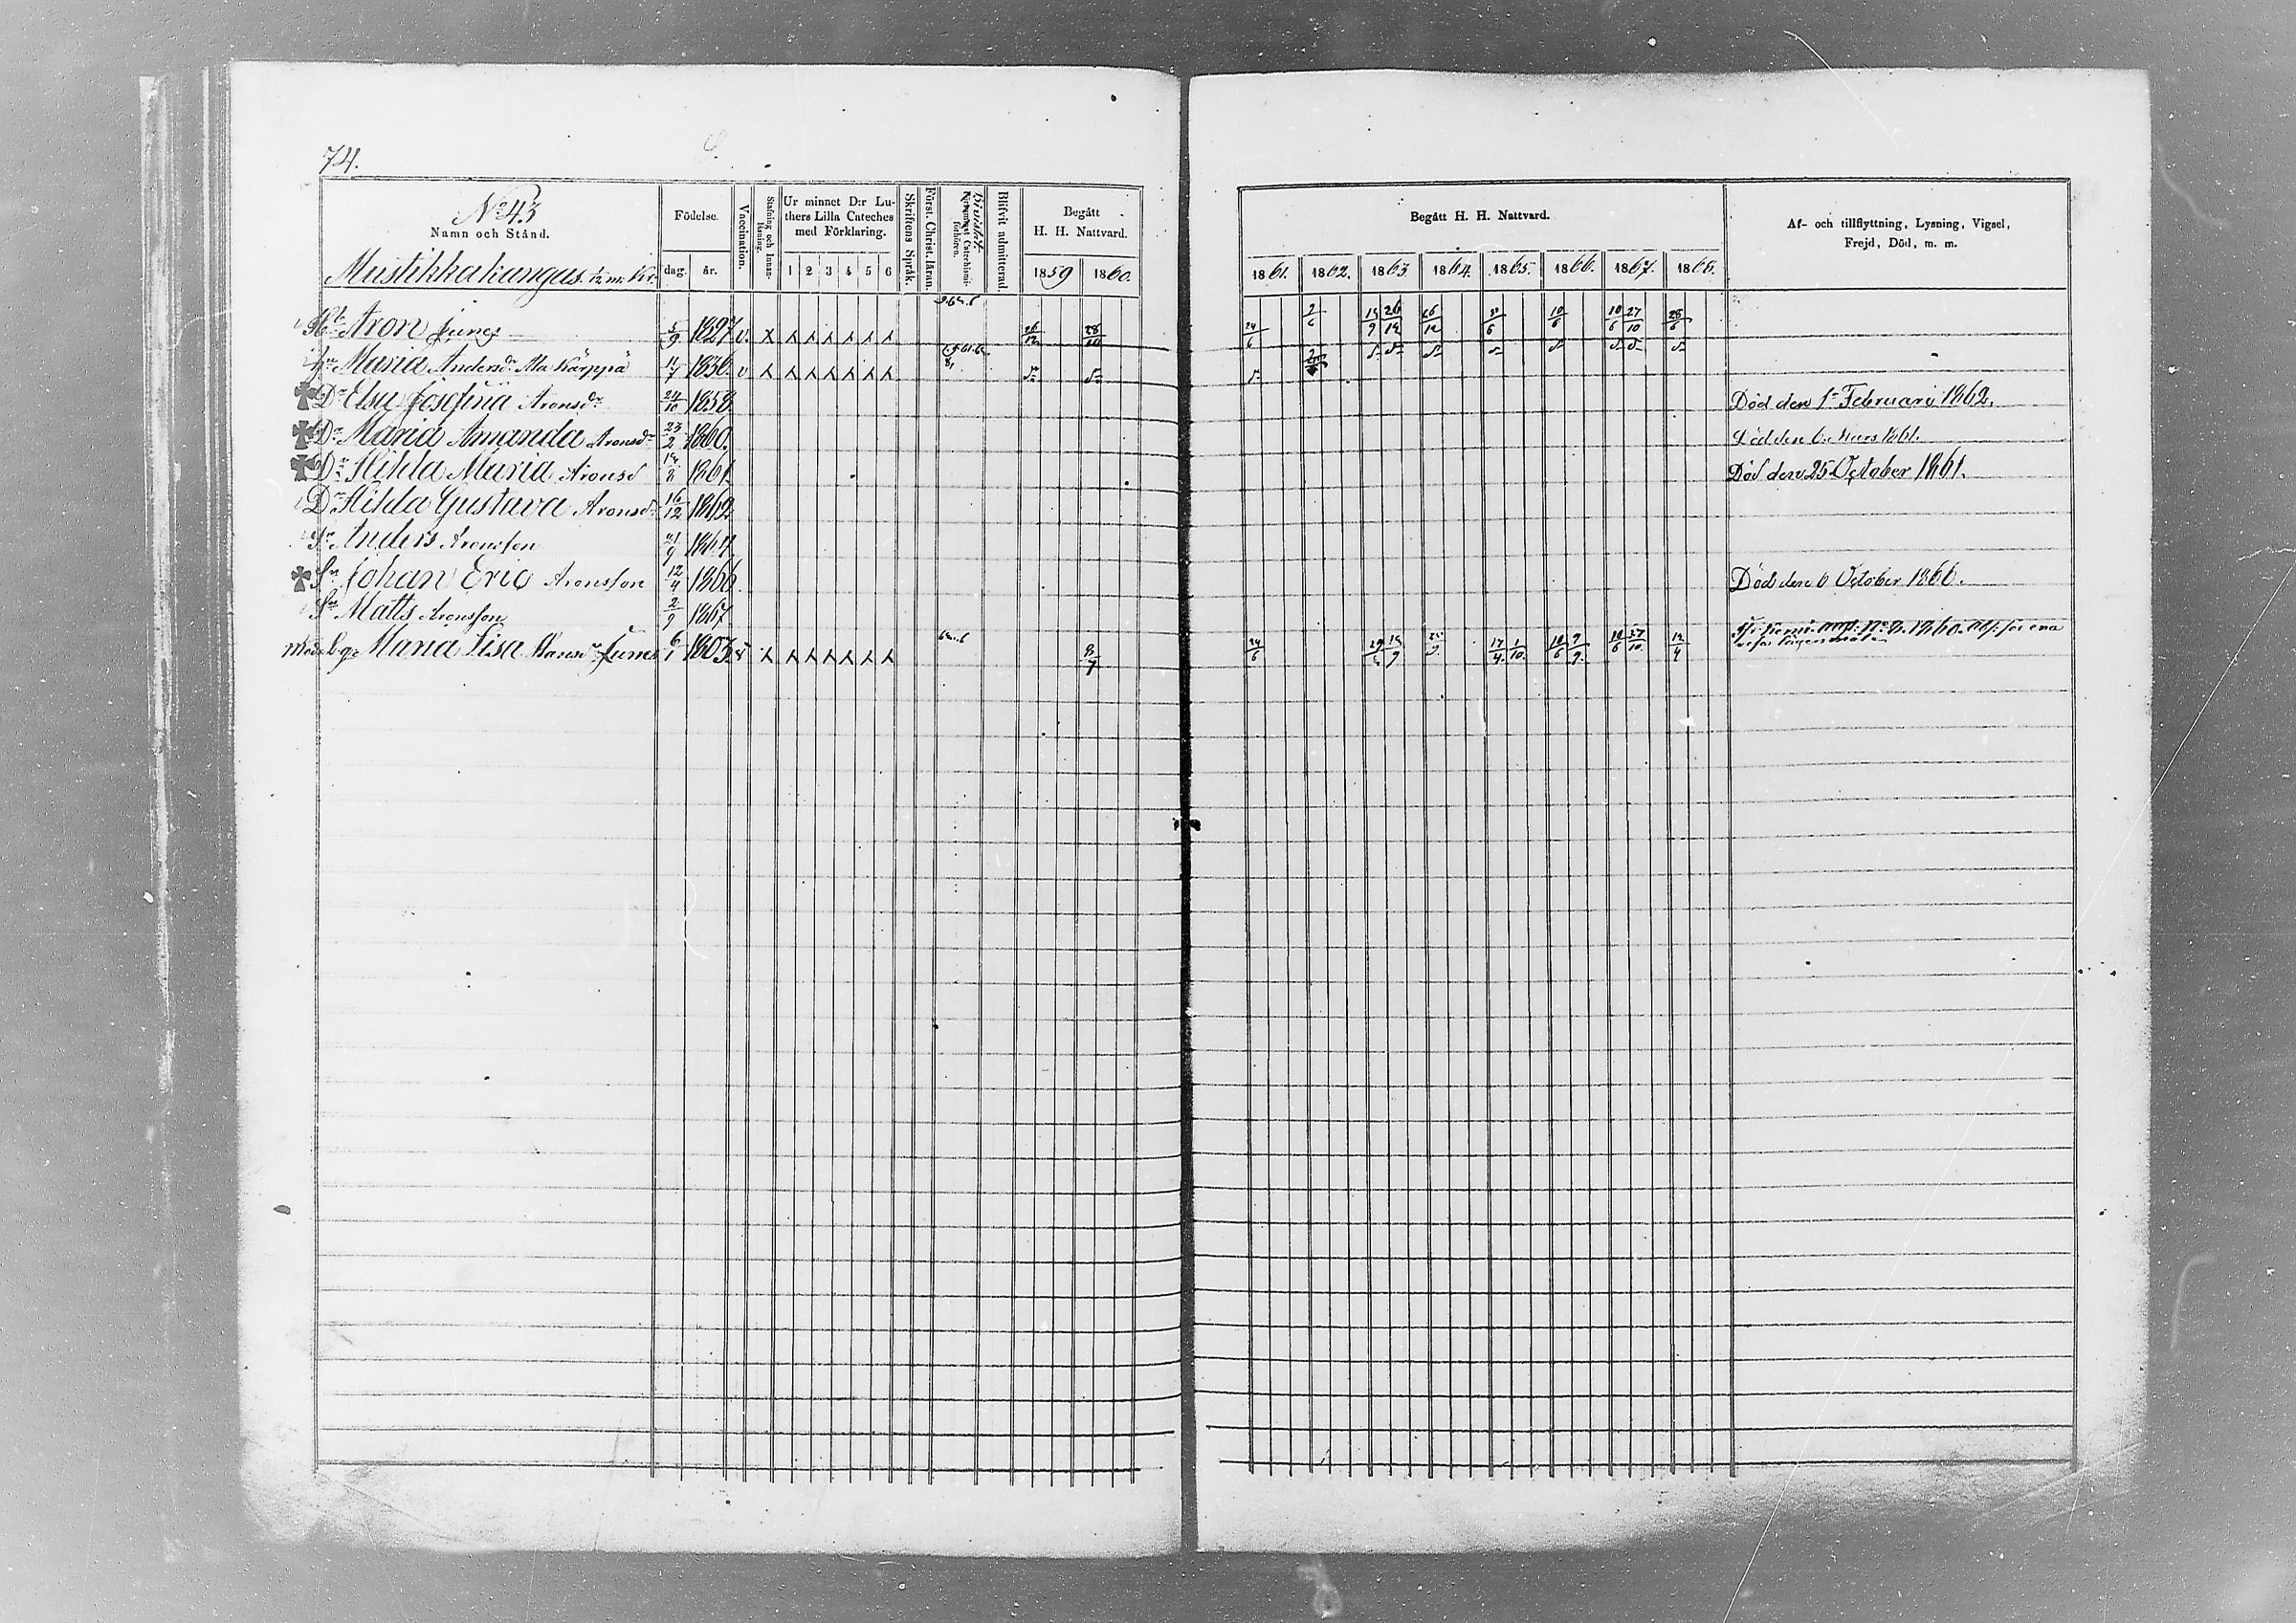 74.
No 43
Namn och Stånd.
Mustikkakangas 1/2 m. Kr.
Födelse.
dag. år.
Vaccination.
Stafning och Innanläsning.
Ur minnet D:r Luthers Lilla Cateches med Förklaring.
1 2 3 4 5 6
Skriftens Språk.
Först. Christ. läran.
Bevistat Catechismiförhören.
Blifvit admitterad.
Begått H. H. Nattvard.
1859 1860.
Begått H. H. Nattvard.
1861. 1862. 1863 1864. 1865. 1866. 1867. 1868.
Af- och tillflyttning, Lysning, Vigsel,
Frejd, Död, m. m.
Aron Junes 5/9 1827 v. 26/12 28/10 24/6 2/6 13/9 26/12 26/12 10/6 10/6 27/10 28/6
Maria Andersdr Ala Kärppä 11/7 1836. v
Dr Elsa Josefina Aronsdr 24/10 1858 Död den 1 Februari 1862.
Dr Maria Amanda Aronsdr 23/2 1860. Död den 6 Mars 1861.
Dr Hilda Maria Aronsd 1861. Död den 25 October 1861.
Dr Hilda Gustava Aronsdr 16/12 1862
Sn Anders Aronsson 21/9 1864
Sn Johan Eric Aronsson 12/4 1866 Död den 6 October 1866.
Sn Matts Aronsson 2/9 1867
Maria Lisa Hansdr Junes 6/1 1803 8/7 24/6 13/9 17/4 1/10 10/6 9/9 10/6 27/10 12/4